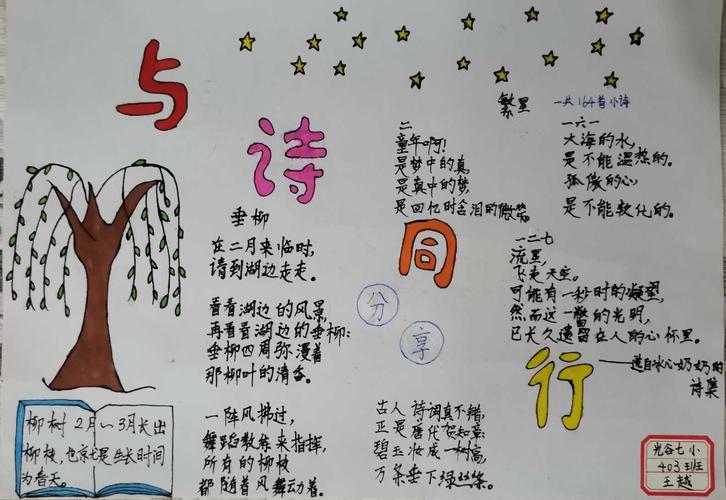 与
诗
同
行
分
享
垂柳
在二月来临时,
请到湖边走走。
看看湖边的风景,
再看看湖边的垂柳:
垂柳四周弥漫着
那柳叶的清香。
一阵风拂过,
舞蹈教练来指挥,
所有的柳枝
都随着风舞动着。
古人诗词真不错,
正是唐代贺知章:
碧玉妆成一树高,
万条垂下绿丝绦。
繁星 一共164首小诗
二
童年啊!
是梦中的真,
是真中的梦,
是回忆时含泪的微笑。
一六一
大海的水,
是不能温热的。
孤傲的心,
是不能软化的。
一二七
流星,
飞走天空。
可能有一秒时的凝望,
然而这一瞥的光明,
已长久遗留在人的心怀里。
——选自冰心奶奶的
诗集
柳树2月~3月长出
柳枝,也就是生长时间
为春天。
光谷七小
403班
王越